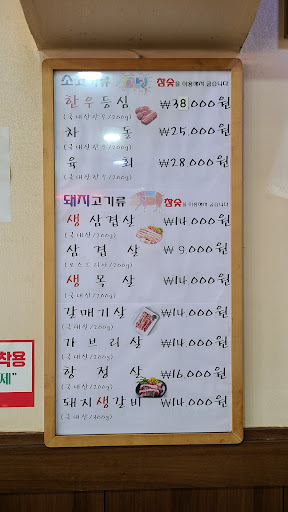 소고기류 참숯을 이용해서 굽습니다
한우등심 ₩38,000원
(국내산한우/200g)
차돌 ₩25,000원
육회 ₩28,000원
돼지고기류 참숯을 이용해서 굽습니다
생삼겹살 ₩14,000원
(국내산/200g)
삼겹살 ₩9,000원
(오스트리아/200g)
생목살 ₩14,000원
(국내산/200g)
갈매기살 ₩14,000원
(국내산/200g)
가브리살 ₩14,000원
(국내산/200g)
항정살 ₩16,000원
(국내산/200g)
돼지생갈비 ₩14,000원
(국내산/400g)
착용
세"